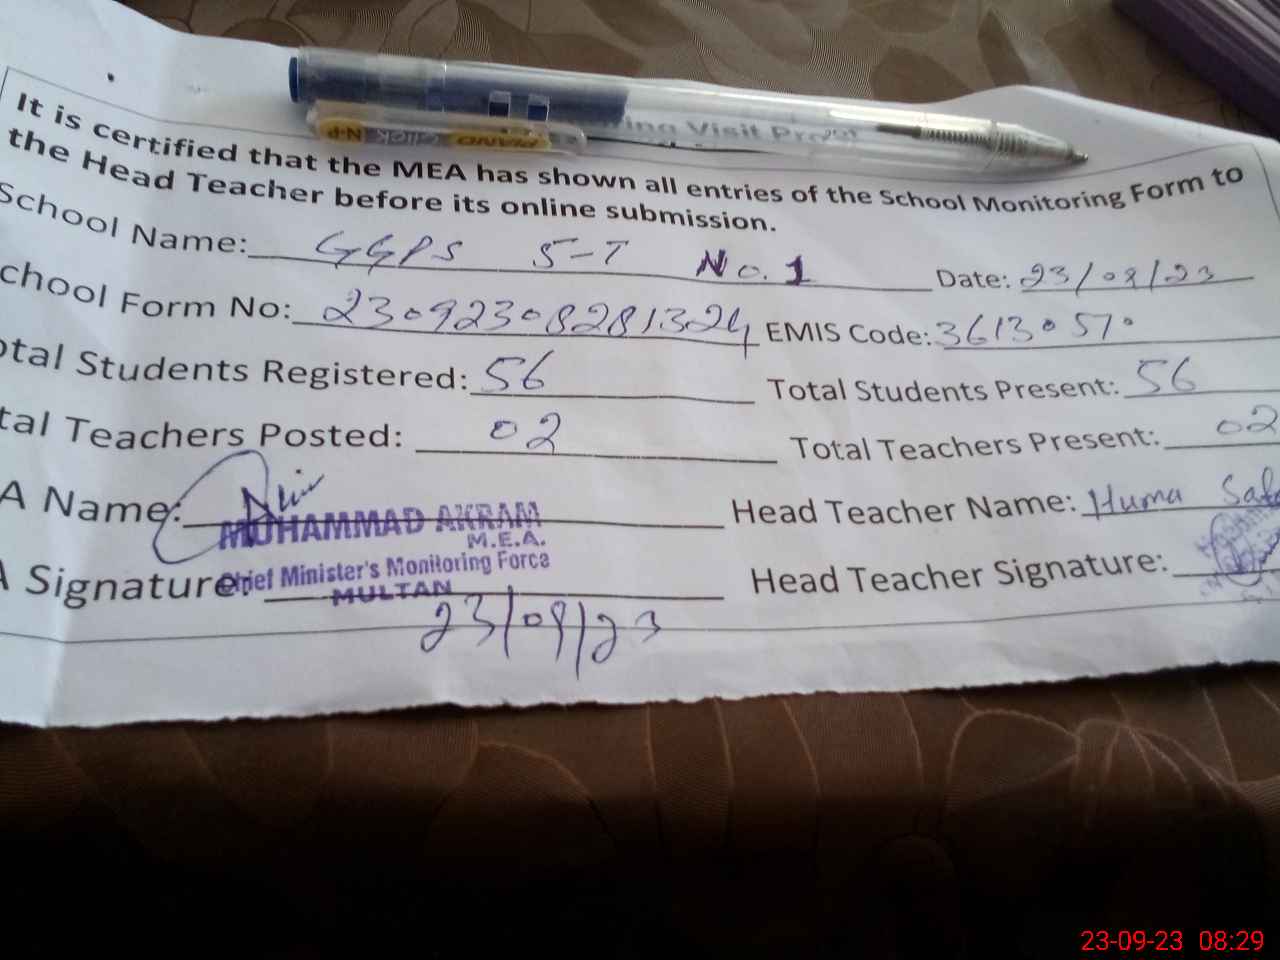 ing Visit Pro
PIANO Click N-P
It is certified that the MEA has shown all entries of the School Monitoring Form to
the Head Teacher before its online submission.
School Name: GGPS 5-T No. 1 Date: 23/09/23
chool Form No: 23092308281324 EMIS Code: 36130570
otal Students Registered: 56 Total Students Present: 56
tal Teachers Posted: 02 Total Teachers Present: 02
A Name: MUHAMMAD AKRAM Head Teacher Name: Huma
M.E.A.
A Signature: Chief Minister's Monitoring Force Head Teacher Signature:
MULTAN
23/09/23
23-09-23 08:29